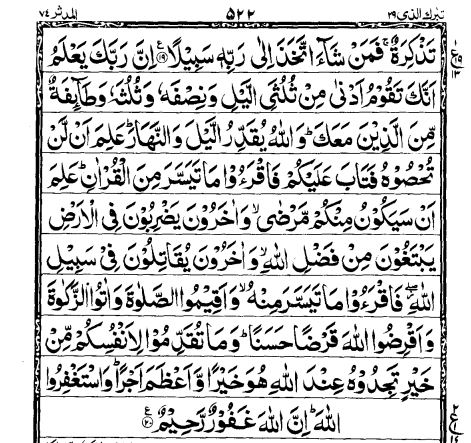 تبرك الذي ٢٩ ٥٢٢ المدثر ٧٤
تَذْكِرَةٌ ۚ فَمَنْ شَآءَ اتَّخَذَ اِلٰى رَبِّهٖ سَبِيْلًا ﴿١٩﴾ اِنَّ رَبَّكَ يَعْلَمُ
اَنَّكَ تَقُوْمُ اَدْنٰى مِنْ ثُلُثَيِ الَّيْلِ وَنِصْفَهٗ وَثُلُثَهٗ وَطَآئِفَةٌ
مِّنَ الَّذِيْنَ مَعَكَ ؕ وَاللّٰهُ يُقَدِّرُ الَّيْلَ وَالنَّهَارَ ؕ عَلِمَ اَنْ لَّنْ
تُحْصُوْهُ فَتَابَ عَلَيْكُمْ فَاقْرَءُوْا مَا تَيَسَّرَ مِنَ الْقُرْاٰنِ ؕ عَلِمَ
اَنْ سَيَكُوْنُ مِنْكُمْ مَّرْضٰى ۙ وَاٰخَرُوْنَ يَضْرِبُوْنَ فِى الْاَرْضِ
يَبْتَغُوْنَ مِنْ فَضْلِ اللّٰهِ ۙ وَاٰخَرُوْنَ يُقَاتِلُوْنَ فِيْ سَبِيْلِ
اللّٰهِ ۖ فَاقْرَءُوْا مَا تَيَسَّرَ مِنْهُ ۙ وَاَقِيْمُوا الصَّلٰوةَ وَاٰتُوا الزَّكٰوةَ
وَاَقْرِضُوا اللّٰهَ قَرْضًا حَسَنًا ؕ وَمَا تُقَدِّمُوْا لِاَنْفُسِكُمْ مِّنْ
خَيْرٍ تَجِدُوْهُ عِنْدَ اللّٰهِ هُوَ خَيْرًا وَّاَعْظَمَ اَجْرًا ؕ وَاسْتَغْفِرُوا
اللّٰهَ ؕ اِنَّ اللّٰهَ غَفُوْرٌ رَّحِيْمٌ ﴿٢٠﴾